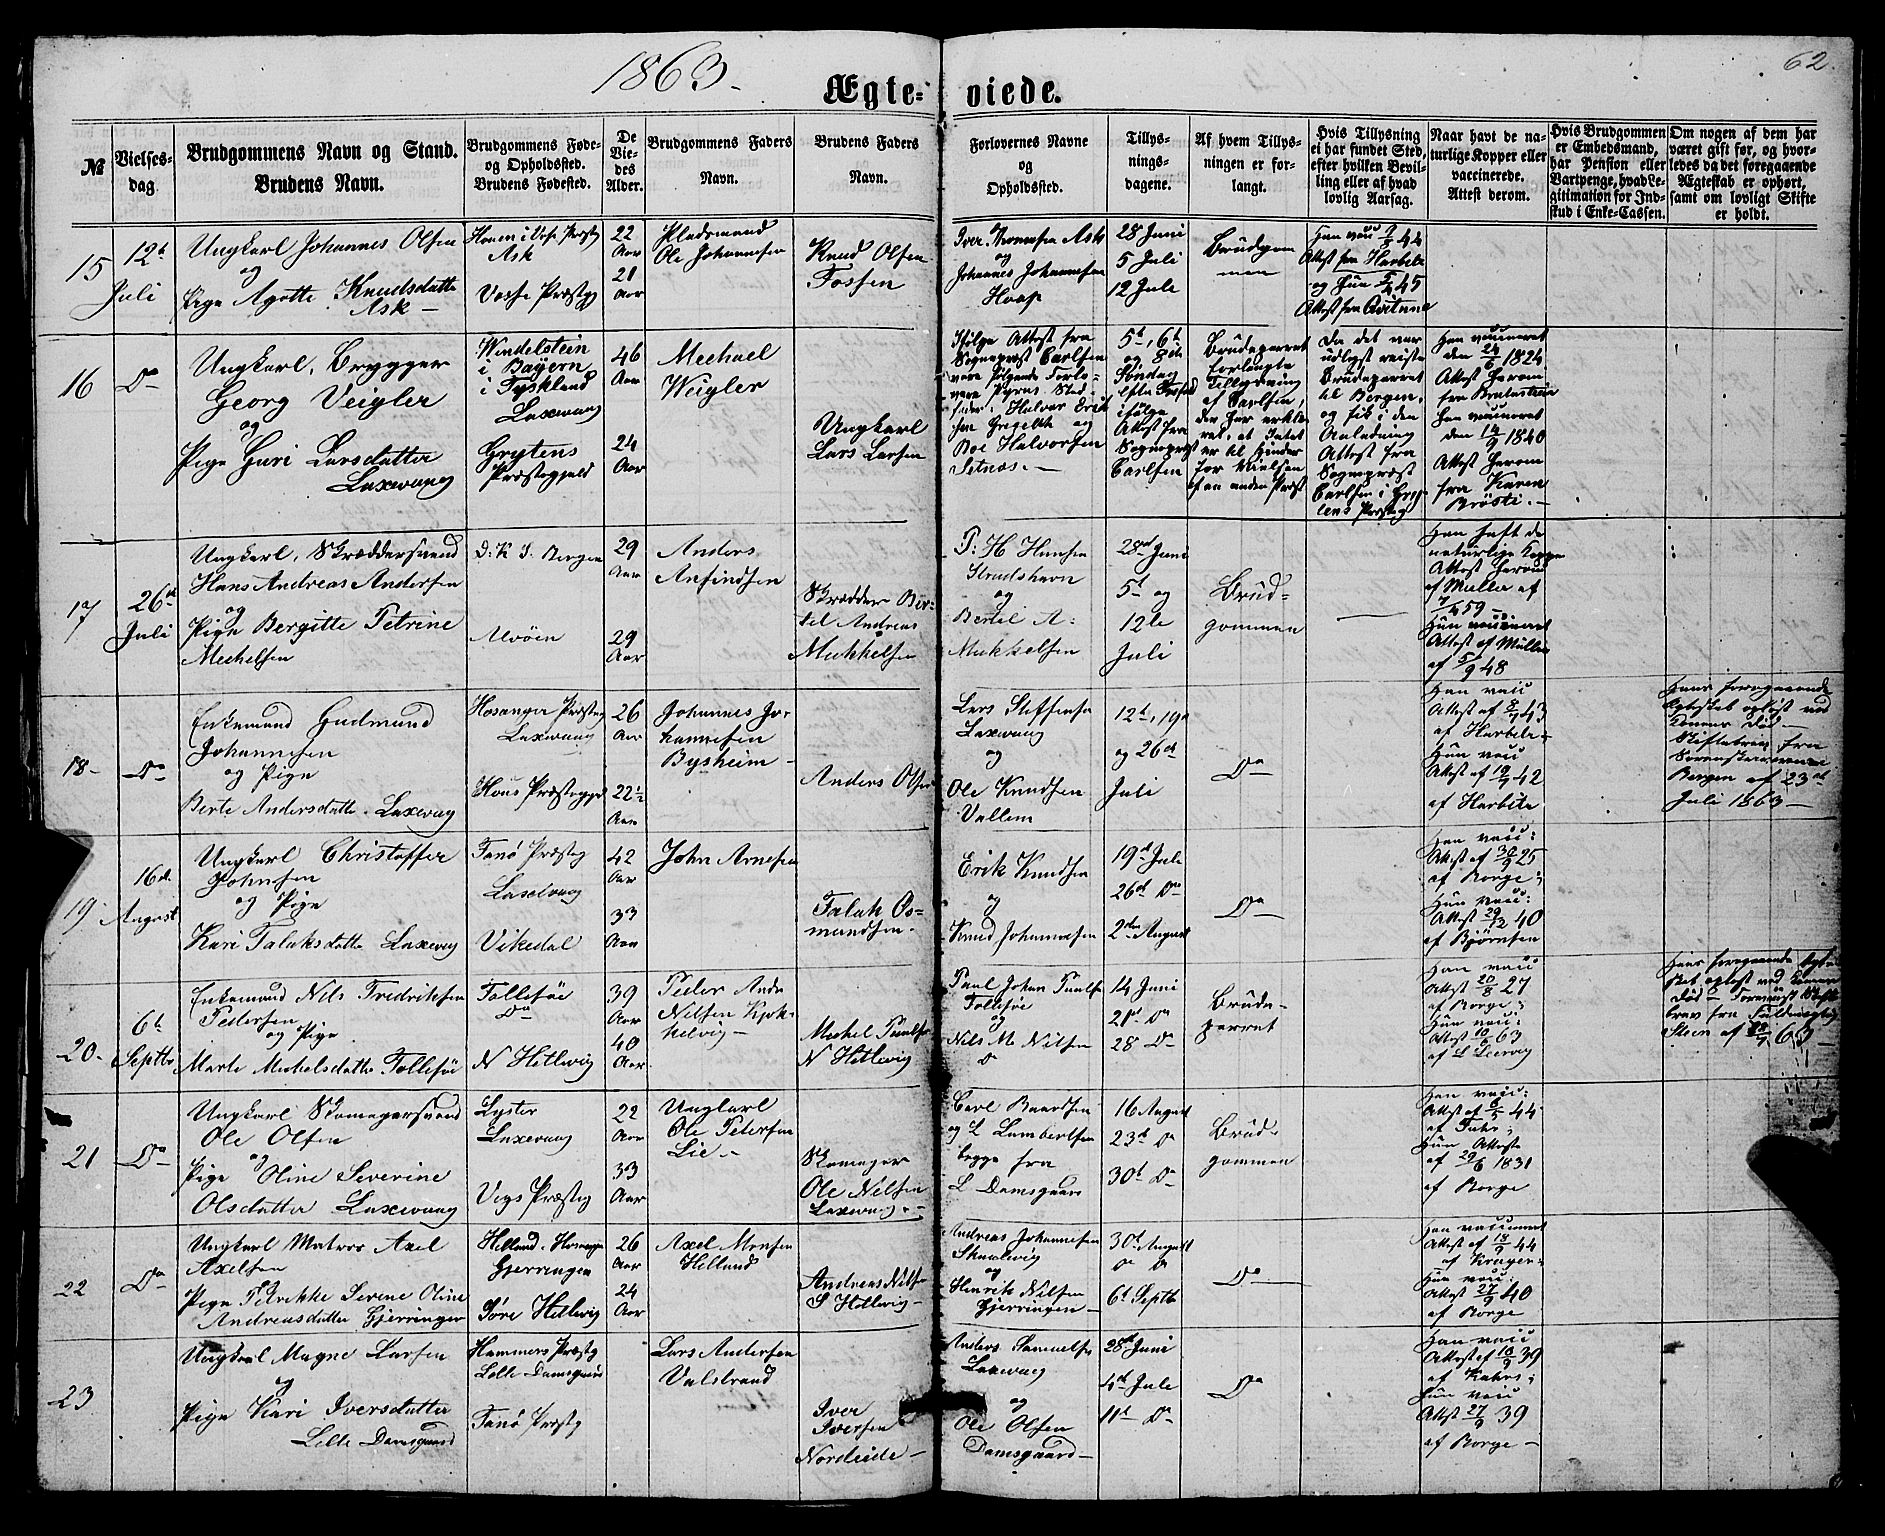 1863.
62.
Ægteviede.
№
Vielsesdag.
Brudgommens Navn og Stand.
Brudens Navn.
Brudgommens Føde- og Opholdssted.
Brudens Fødested.
De Viedes Alder.
Brudgommens Faders Navn.
Brudens Faders Navn.
Forlovernes Navne og Opholdssted.
Tillysningsdagene.
Af hvem Tillysningen er forlangt.
Hvis Tillysning ei har fundet Sted, efter hvilken Bevilling eller af hvad lovlig Aarsag.
Naar havt de naturlige Kopper eller vaccinerede. Attest derom.
Hvis Brudgommen er Embedsmand, har Pension eller Vartpenge, hvad Legitimation for Indskud i Enke-Cassen.
Om nogen af dem har været gift før, og hvorledes da det foregaaende Ægteskab er ophørt, samt om lovligt Skifte er holdt.
15
12te
Juli
Ungkarl Johannes Olsen
og
Pige Agatte Knudsdatte
Ask
Ask
Vosse Præstg
22
Aar
21
Aar
Pladsmand
Ole Johannesen
Knud Olsen
Fossen
Iver Thomesen Ask
og
Johannes Johannesen
Hoop
28 Juni
5 Juli
12 Juli
Brudgommen
16
Do
Ungkarl, Brygger
Georg Veigler
og
Pige Guri Larsdatter
Laxevaag
Windelstein
i Bayern
i Tyskland
Laxevaag
Grytens
Præstegjeld
46
Aar
24
Aar
Michael
Weigler
Ungkarl
Lars Larsen
Ifølge Attest fra
Sognepræst Carlsen
vare følgende Forlovere
og
Boe Halvorsen
Setnæs.
5te, 6te
og 8de
Søndag
ifølge
Attest fra
Sognepræst
Carlsen
Brudeparret
forlangte
Tillysning
af Carlsen,
er til Hinder
for Vielsen
af en anden Præst
Da det var
udlyst reiste
Brudeparret
til Bergen,
og fik i den
Anledning
Attest fra
Sognepræst
Carlsen i Grytens Præstg
Han vaccineret
den 24/6 1824
Attest herom
Hun vaccineret
den 14/9 1840
Attest herom
fra Karen
Brøsti.
17
26de
Juli
Ungkarl, Skræddersvend
Hans Andreas Andersen
og
Pige Bergitte Petrine
Michelsen
D. K. S. Bergen
Alvøen
29
Aar
29
Aar
Anders
Anfindsen
Skrædder Bertel Andreas
Mikkelsen
P. H. Hansen
Strudshavn
og
Bertel A.
Mikkelsen
28de Juni
5te og
12te
Juli
Brudgommen
Han haft de
naturlige Kopper
Attest herom
af Müller af
7/4 59
Hun vaccineret
Attest af Müller
af 5/9 48
18
Do
Enkemand Gudmund
Johannesen
og Pige
Berte Andersdatte Laxevaag
Hosanger Præstg
Laxevaag
Hous Præstegjd
26
Aar
22½
Aar
Johannes Johannesen
Bysheim
Anders Olsen
Lars Steffensen
Laxevaag
og
Ole Knudsen
Vallem
12te, 19de
og 26de
Juli
Do
Han vacc
Attest af 8/7 43
af Harbitz
Hun vacc
Attest af 19/7 42
af Harbitz
Hans foregaaende
Ægteskab opløst ved
Konens Død
Skiftebrev fra
Sorenskriveren
Bergen af 23de
Juli 1863
19
16de
August
Ungkarl Christoffer
Johnsen
og Pige
Kari Talaksdatte Laxevaag
Fanø Præstg
Laxevaag
Vikedal
42
Aar
33
Aar
John Arnesen
Talak Osmundsen
Erik Knudsen
og
Knud Johannesen
19de Juli
26de Do
2den August
Do
Han vacc:
Attest 30/9 25
af Borge;
Hun vacc:
Attest 29/12 40
af Bjørnsen
20
6te
Septbr
Enkemand Nils Fredriksen
Pedersen
og Pige
Marte Mikelsdatte Tollesøe
Tollesøe
Do
N Hetlevig
39
Aar
40
Aar
Peder Andr
Nilsen
Mickel Paulsen
N Hetlevig
Paul Johan Paulsen
Tollesøe
og
Nils M. Nilsen
Do
14 Juni
21de Do
28 Do
Brudeparret
Han vacc
Attest 20/8 27
af Borge;
Hun vacc:
Attest 10/6 63
Hans foregaaende
21
Do
Ungkarl Skomagersvend
Ole Olsen
og
Pige Oline Severine
Olsdatter Laxevaag
Lyster
Laxevaag
Vigs Præstg
22
Aar
33
Aar
Ungkarl
Ole Petersen
Lie
Skomager
Ole Nilsen
Laxevaag
Carl Baardsen
og L Lambertsen
begge fra
L Damsgaard
16 August
23de Do
30te Do
Brudgommen
Han vacc:
Attest af 6/5 44
Hun Attest
af 29/6 1831
af Borge
22
Do
Ungkarl Matros Axel
Axelsen
Pige Petrikke Serene Oline
Andreasdatter Gjerringen
Gjerringen
Søre Hetlevig
26
Aar
24
Aar
Axel Monsen
Helland
Andreas Nilsen
S Hetlevig
Andreas Johannesen
Skaalevig
og
Henrik Nilsen
Gjerringen
30te August
6te Septbr
Do
Han vaccineret
Attest af 18/9 44
af Krøger;
Hun vacc:
Attest 27/9 40
af Borge
23
Ungkarl Magne Larsen
og
Pige Kari Iversdatter
Lille Damsgaard
Hammers Præstg
Lille Damsgaard
Fanø Præstg
Lars Andersen
Valstrand
Iver
Iversen
Nordeide
Anders Samuelsen
Laxevaag
og
Ole Olsen
Damsgaard
28de Juni
4de Juli
11te Do
Do
Han vacc
Attest af 10/9 39
Hun vacc
Attest 27/9 39
af Borge